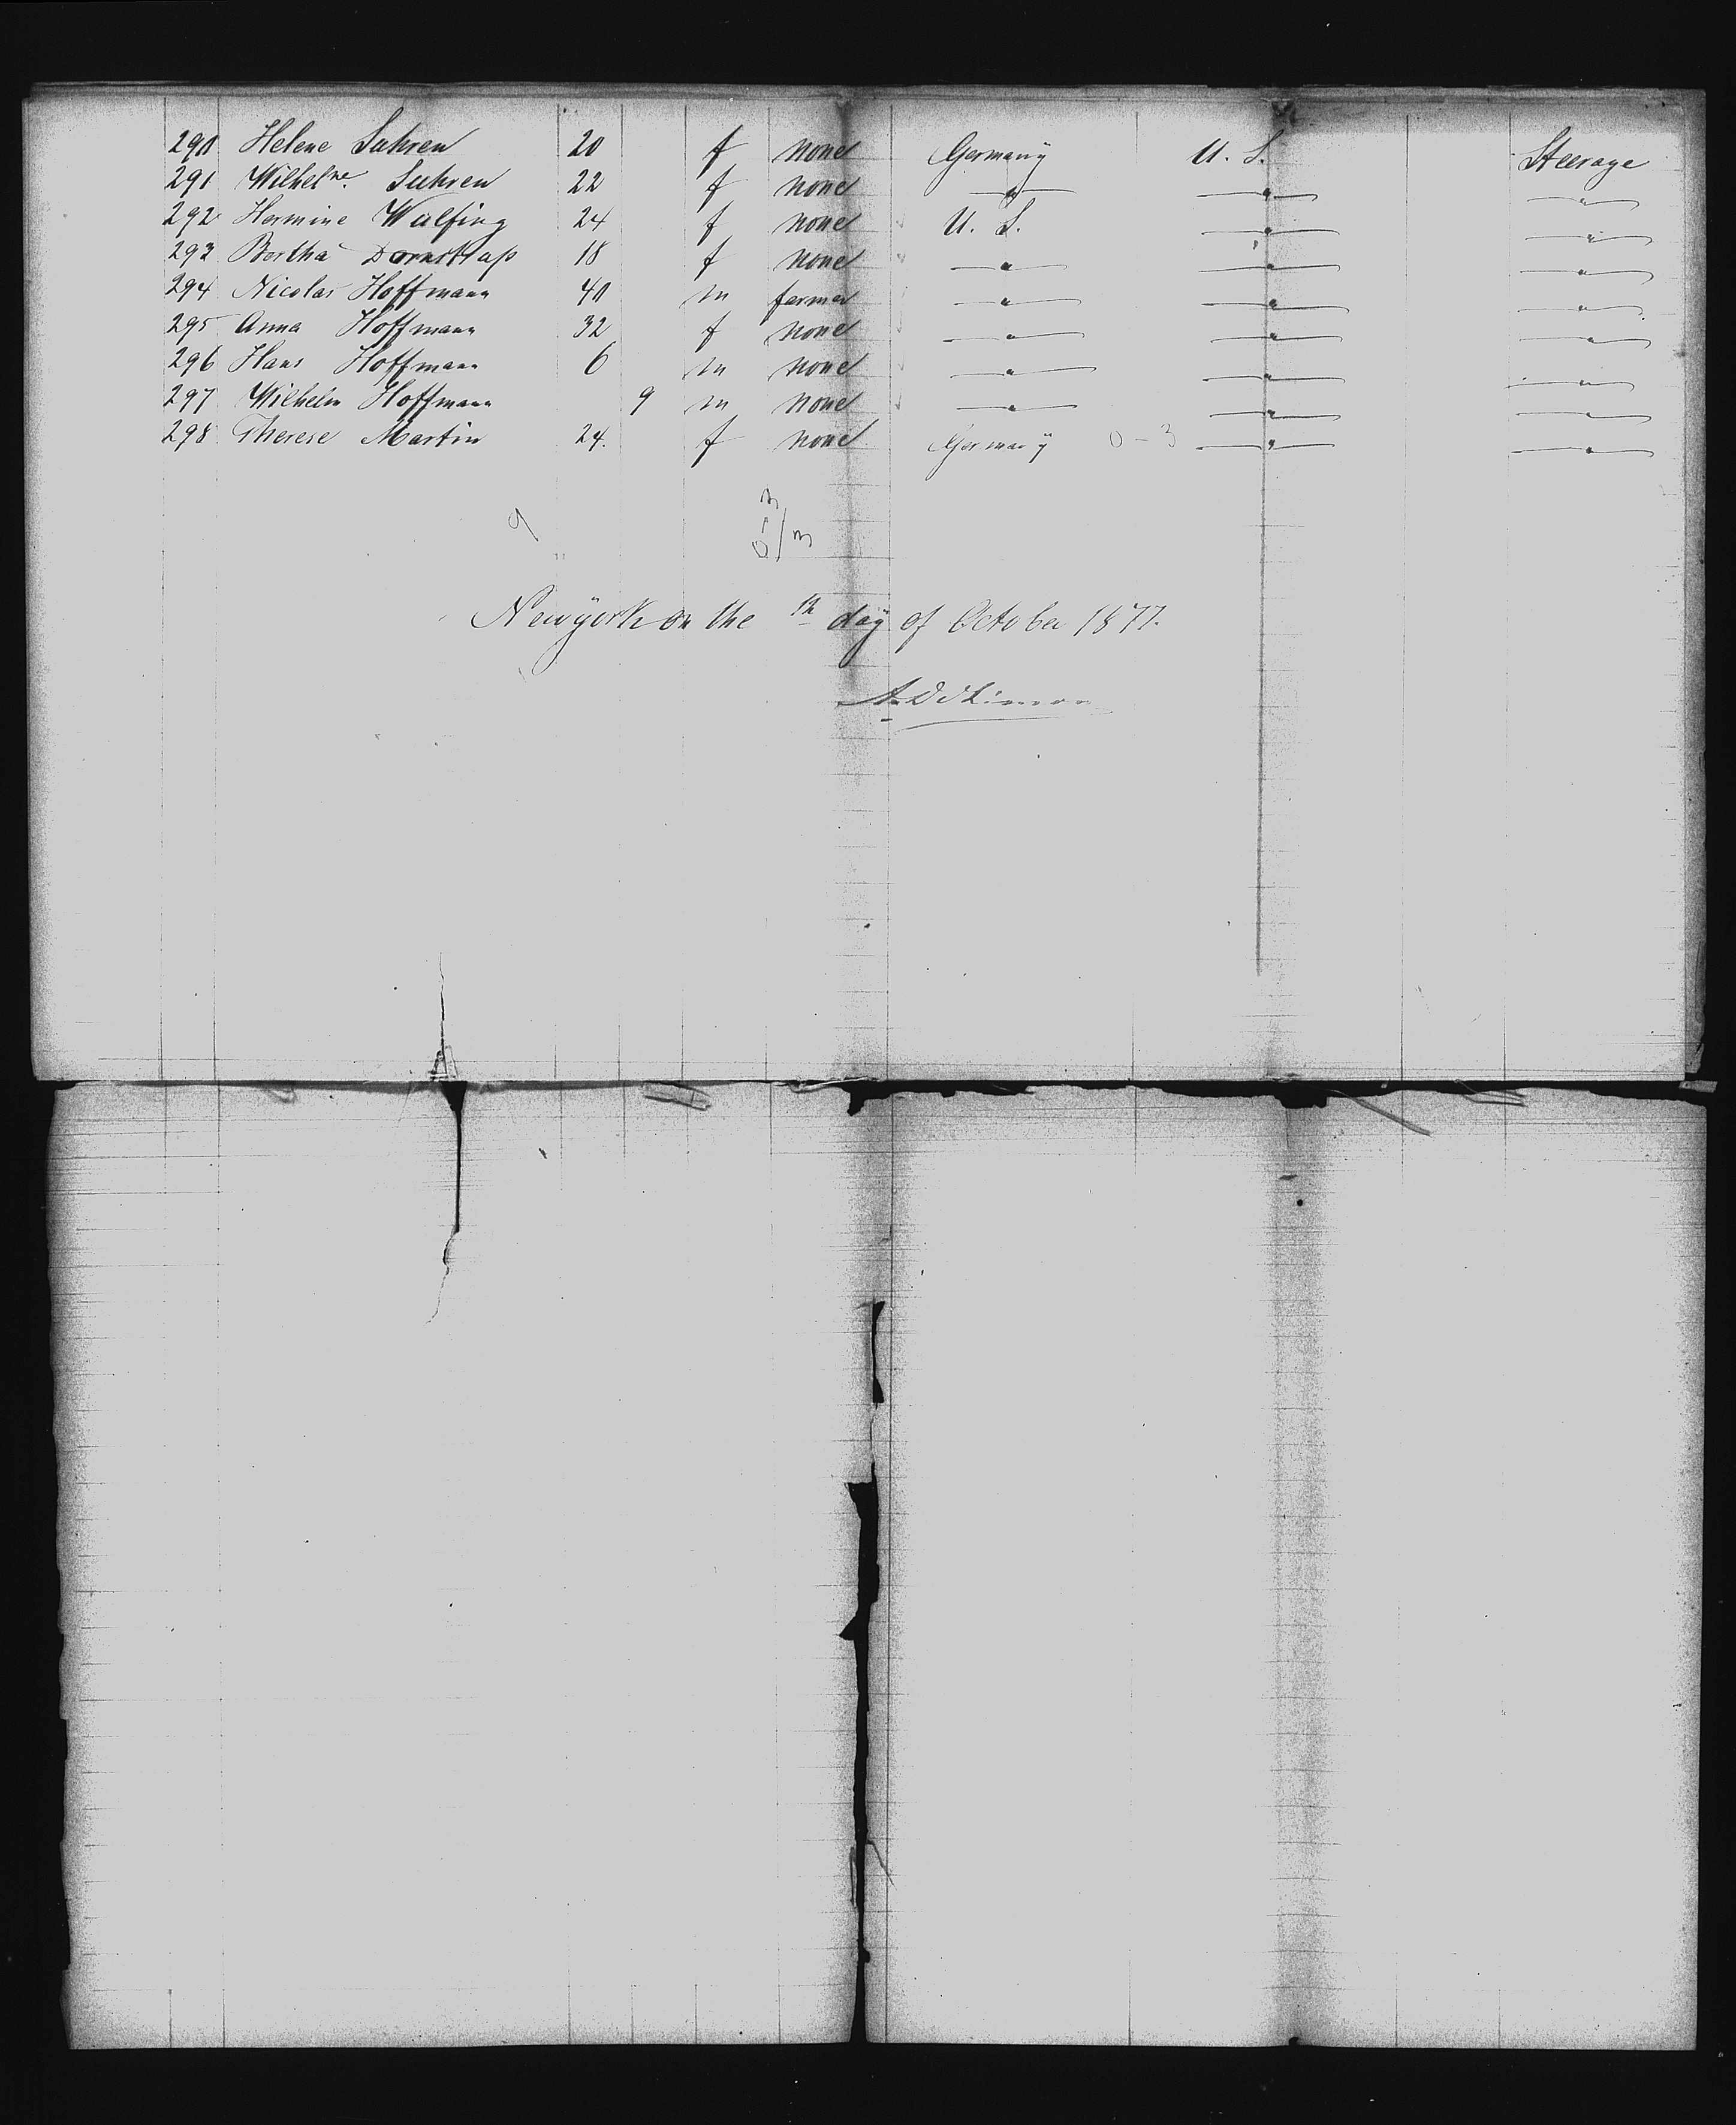 290 Helene Suhren 20 f none Germany U. S. Steerage
291 Wilhelne. Suhren 22 f none " " "
292 Hermine Wulfing 24 f none U. S. " "
293 Bertha 18 f none " " "
294 Nicolas Hoffmann 40 m farmer " " "
295 Anna Hoffmann 32 f none " " "
296 Hans Hoffmann 6 m none " " "
297 Wilhelm Hoffmann 9 m none " " "
298 Therese Martin 24. f none Germany 0-3 " "
9 0-3/3
Newyork on the th day of October 1877.